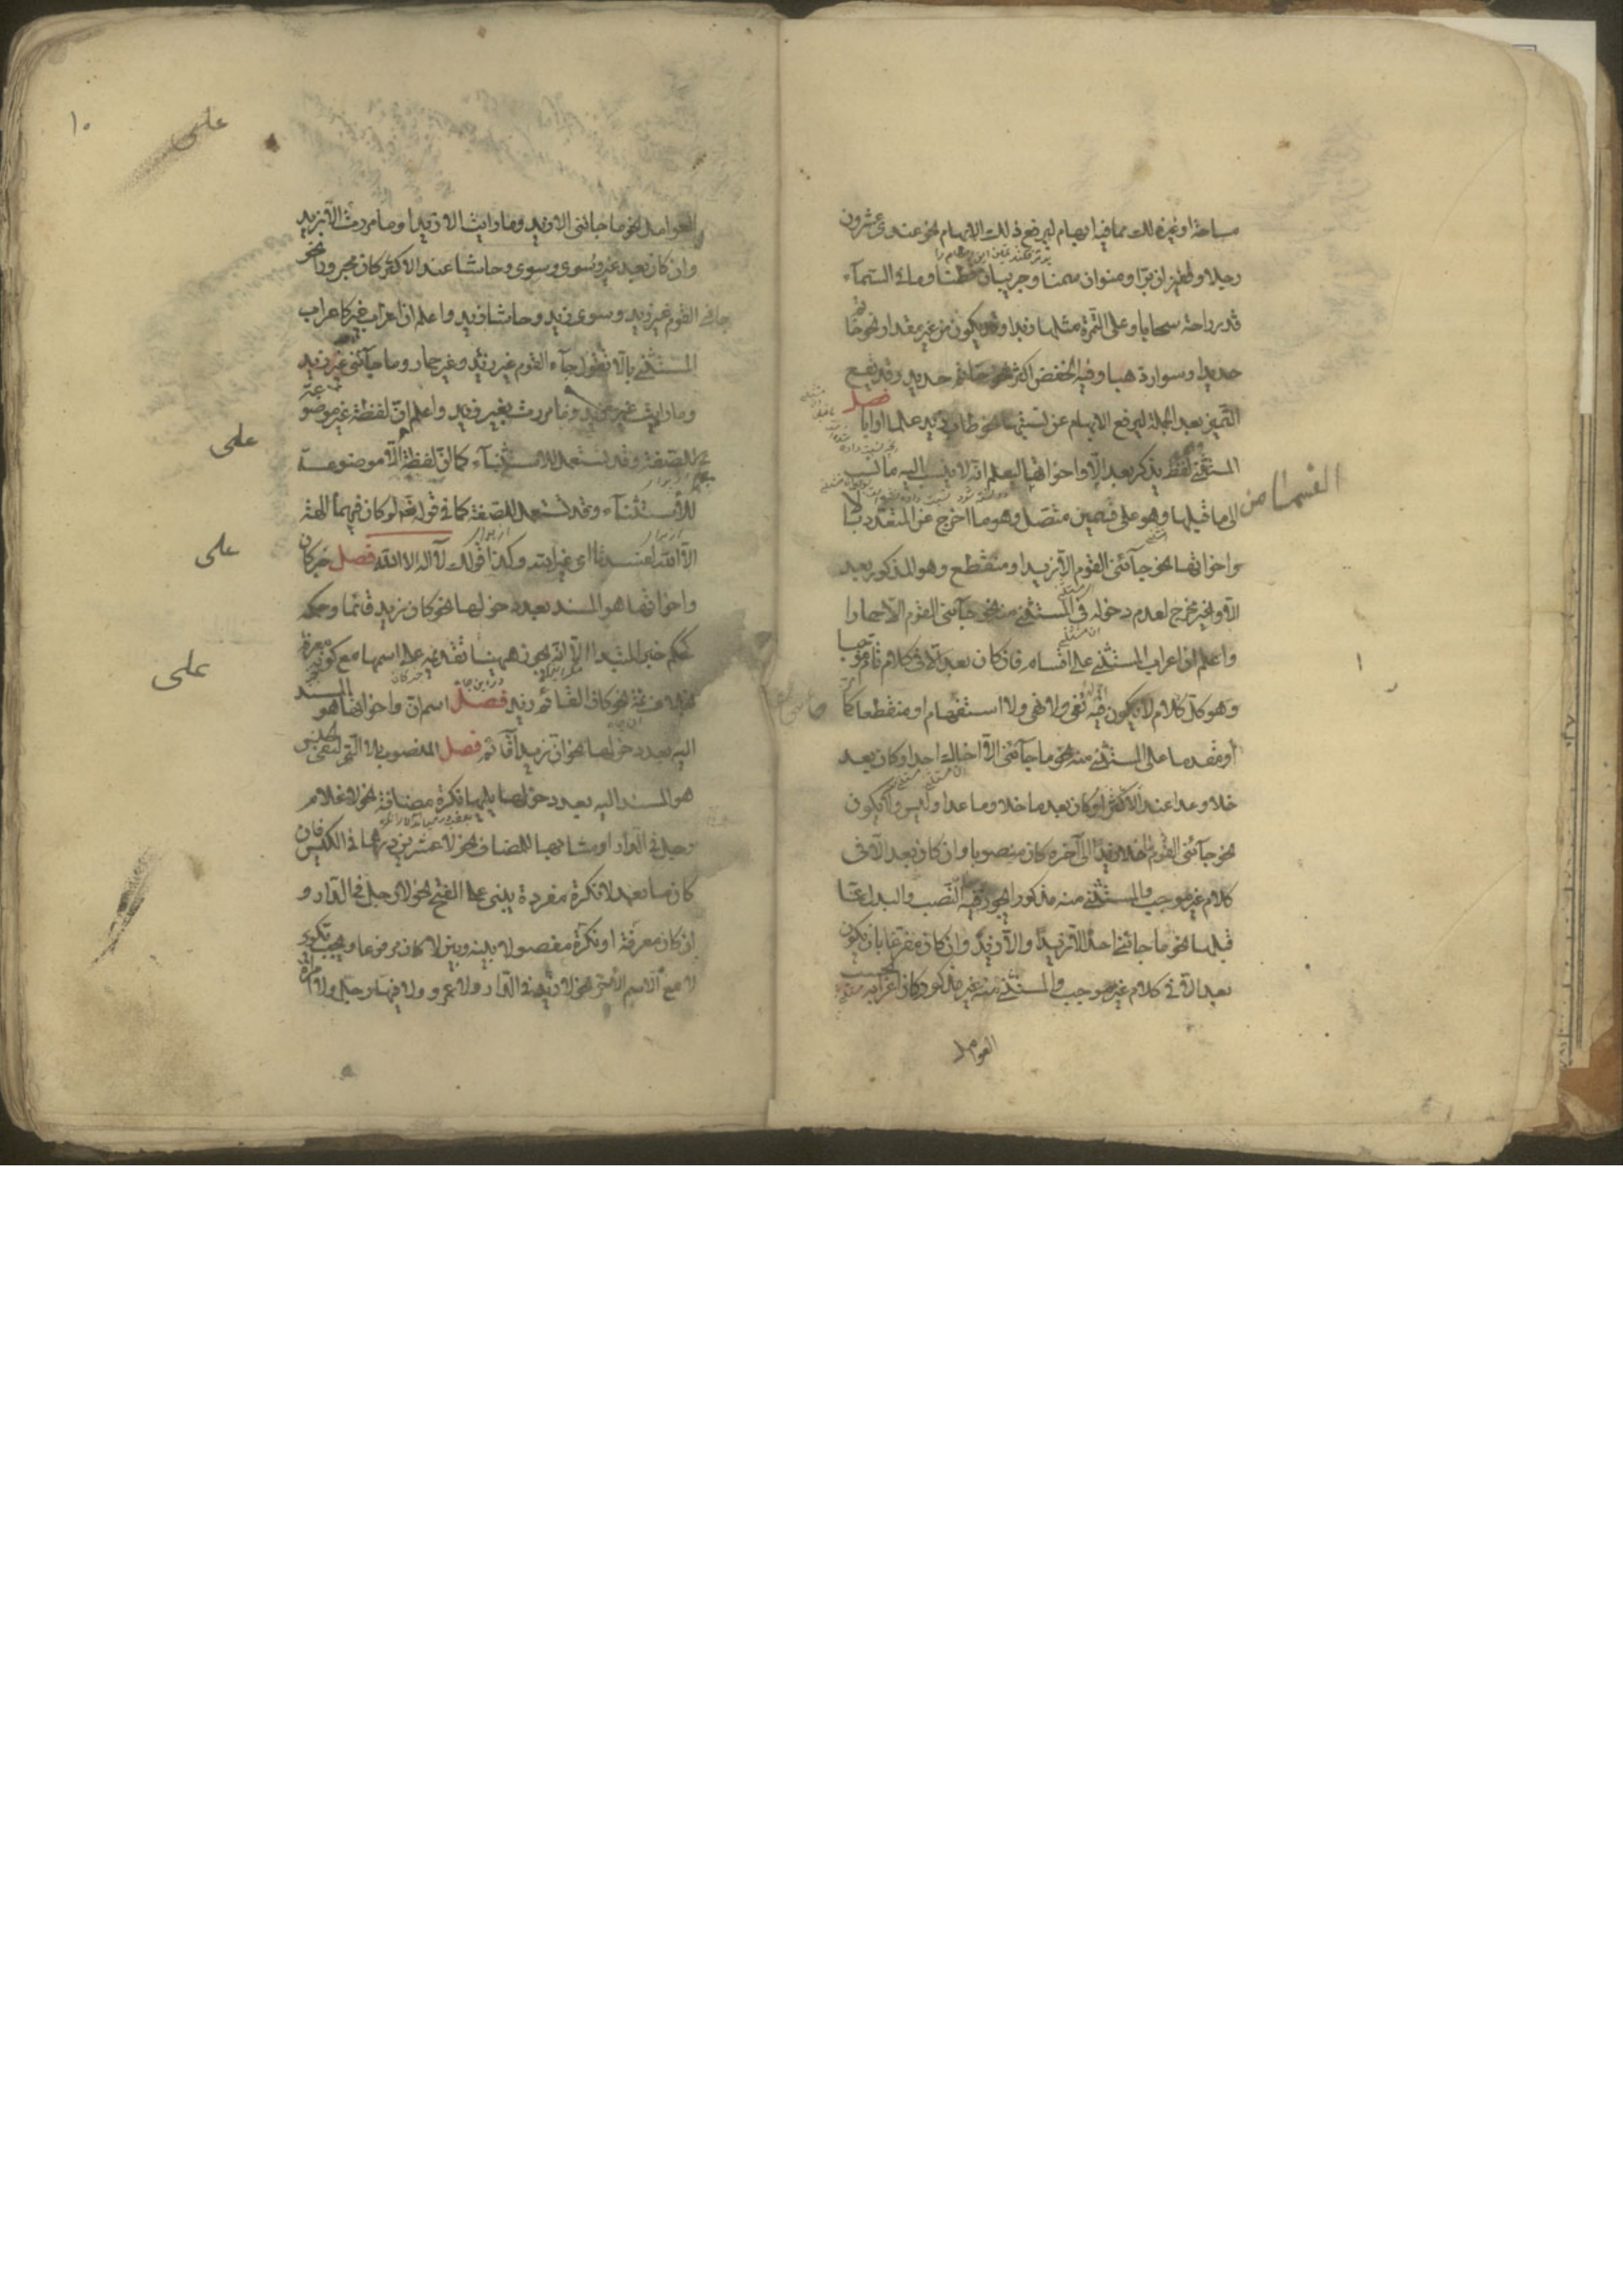 مساحة او غير ذلك مما فيه ابهام ليرفع ذلك الابهام نحو عندى عشرون
رجلا وقفيزان برا ومنوان سمنا وجريبان قطنا وما فى السماء
قدر راحة سحابا وعلى التمرة مثلها زبدا وقد يكون من غير مقدار نحو خاتم
حديدا وسوار ذهبا وفيه الخفض اكثر نحو خاتم حديد وقد يقع
التميز بعد الجملة ليرفع الابهام عن نسبتها نحو طاب زيد علما او ابا فصل
المستثنى لفظ يذكر بعد الا واخواتها ليعلم انه لا ينسب اليه ما نسب
الى ما قبلها وهو على قسمين متصل وهو ما اخرج عن المتعدد بالا
واخواتها نحو جآئنى القوم الا زيدا ومنقطع وهو المذكور بعد
الا وغير مخرج لعدم دخوله فى المستثنى منه نحو جآئنى القوم الا حمارا
واعلم ان اعراب المستثنى على اقسام فان كان بعد الا فى كلام تام موجبا
وهو كل كلام لا يكون فيه نفى ولا نهى ولا استفهام او منقطعا كما مر
او مقدما على المستثنى منه نحو ما جآئنى الا اخاك احد او كان بعد
خلا وعدا عند الاكثر او كان بعد ما خلا وما عدا وليس ولا يكون
نحو جآئنى القوم خلا زيدا الى آخره كان منصوبا وان كان بعد الا فى
كلام غير موجب والمستثنى منه مذكور يجوز فيه النصب والبدل عما
قبلها نحو ما جائنى احد الا زيدا والا زيد وان كان مفرغا بان يكون
بعد الا فى كلام غير موجب والمستثنى منه غير مذكور كان اعرابه بحسب
العوامل
١٠
على
العوامل نحو ما جائنى الا زيد وما رايت الا زيدا وما مررت الا بزيد
وان كان بعد غير وسوى وسوى وحاشا عند الاكثر كان مجرورا نحو
جائنى القوم غير زيد وسوى زيد وحاشا زيد واعلم ان اعراب غير كاعراب
المستثنى بالا تقول جآء القوم غير زيد وغير حمار وما جآئنى غير زيد
وما رايت غير زيد وما مررت بغير زيد واعلم ان لفظة غير موضوعة
للصفة وقد تستعمل للاستثنآء كما ان لفظة الا موضوعة
للاستثنآء وقد تستعمل للصفة كما فى قوله تعالى لو كان فيهما آلهة
الا الله لفسدتا اى غير الله وكذا قولك لا اله الا الله فصل خبر كان
واخواتها هو المسند بعد دخولها نحو كان زيد قائما وحكمه
كحكم خبر المبتدا الا انه يجوز ههنا تقديمه على اسمها مع كونه معرفة
نحو كان القائم زيد فصل اسم ان واخواتها هو المسند
اليه بعد دخولها نحو ان زيدا قائم فصل المنصوب بلا التى لنفى الجنس
هو المسند اليه بعد دخولها يليها نكرة مضافة نحو لا غلام
رجل فى الدار او مشابها للمضاف نحو لا عشرين درهما فى الكيس فان
كان ما بعد لا نكرة مفردة يبنى على الفتح نحو لا رجل فى الدار و
ان كان معرفة او نكرة مفصولا بينه وبين لا كان مرفوعا ويجب تكرير
لا مع الاسم الآخر نحو لا زيد فى الدار ولا عمرو ولا فيها رجل ولا امرأة
على
على
على